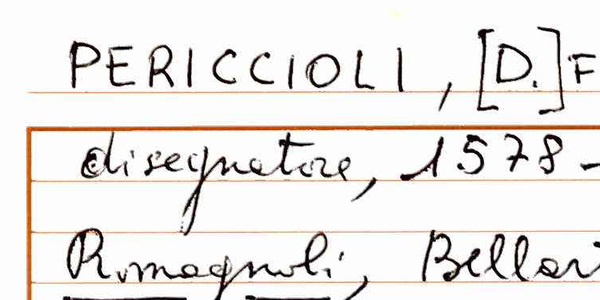 PERICCIOLI, [D.] F
disegnatore, 1578-
Romagnoli, Bellar